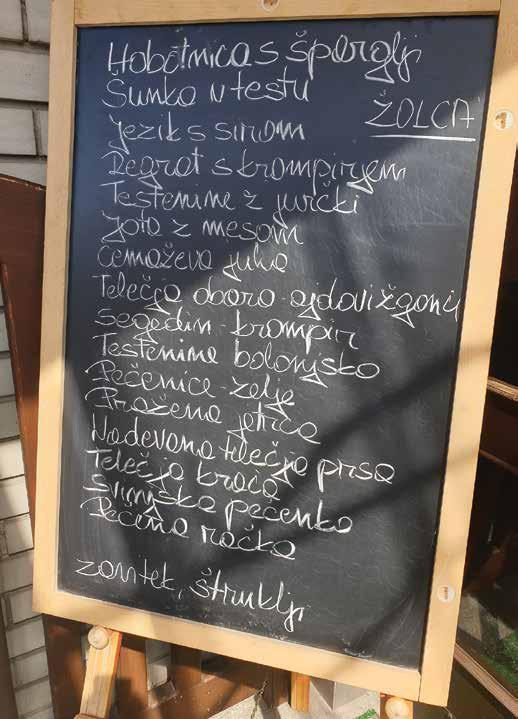 Hobotnica s šparglji
Šunka v testu
ŽOLCA
Jezik s sirom
Regrat s krompirjem
Testenine z jurčki
Jota z mesom
Čemaževa juha
Telečja obara - ajdovi žganci
Segedin - krompir
Testenine bolonjsko
Pečenice - zelje
Pražena jetrca
Nadevana telečja prsa
Telečja krača
Svinjska pečenka
Pečena račka
zavitek, štruklji